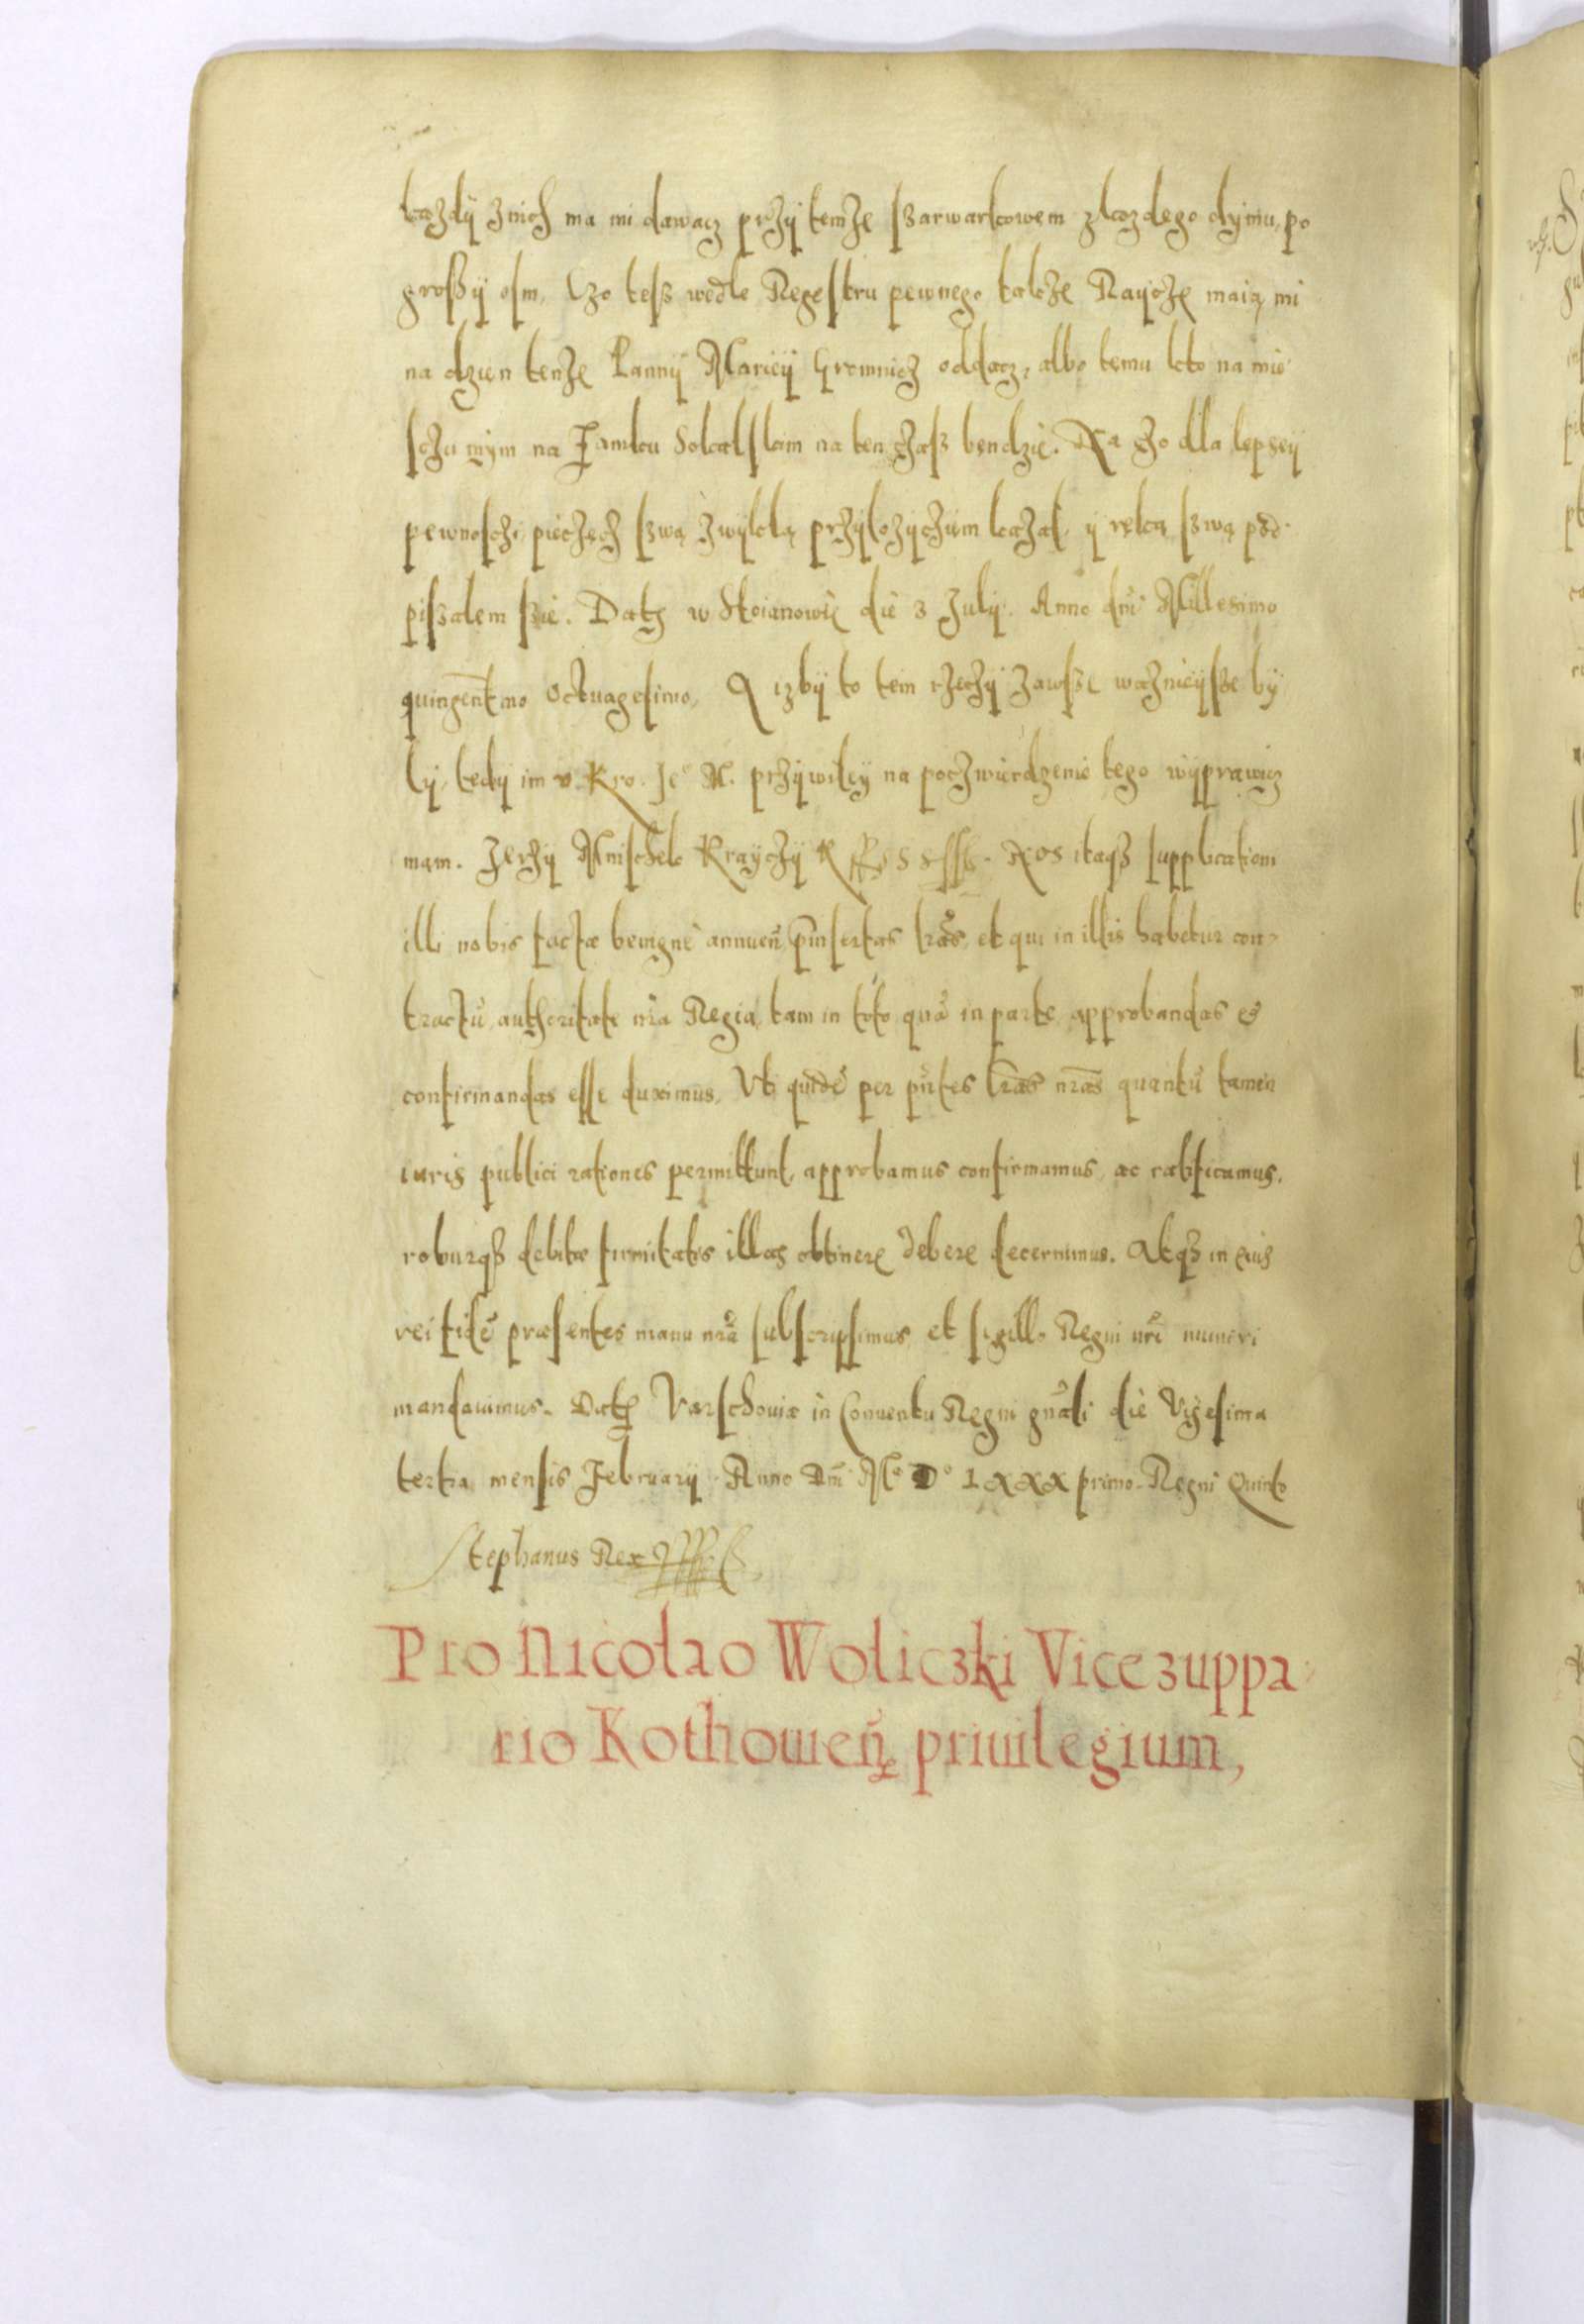 kazdÿ znich ma mi dawacz przÿ temze szarwarkowem zkazdego dÿmu, po
grossÿ osm, Czo tesz wedle Regestru pewnego takze Raycze maią mi
na dzien tenze Pannÿ Mariey Gromnicz oddacz, albo temu kto na mie
sczu mÿm na Zamku Sokalskim na ten czass bendzie. Na czo dlla lepseÿ
pewnosczi, pieczęch szwą zwÿklą, przÿlozÿchum kazał, ÿ ręką szwą pod
piszalem szie. Datꝫ w Stoianowie die 3 Julÿ. Anno dnī Millesimo
quingentmo Octuagesimo, A izbÿ to tem rzeczÿ zawsze wazniejsze bÿ
lÿ, tedÿ im v. Kro. Je° M. przÿwileÿ na poczwierdzenie tego wÿprawicz
mam. Jerzÿ Mnischek Krayczÿ K Nos itaqꝫ supplicationi
illi nobis factæ benigne annueñ, pinsertas lras, et qui in illis habetur con-
tractū, authoritate nra Regia, tam in toto quā in parte, approbandas et
confirmandas esse duximus, Vti quidē per pntes lras nras quantū tamen
iuris publici rationes permittunt, approbamus confirmamus, ac ratificamus,
roburqꝫ debitæ firmitatis illas obtinere debere decernimus. Atqꝫ in eius
rei fidē præsentes manu nra subscripsimus, et sigillo Regni nri muniri
mandauimus. Datꝫ Varschouiæ in Conuentu Regni gnali die Vigesima
tertia mensis Februarÿ Anno Dni M° D° LXXX primo. Regni Quinto
Stephanus Rex
Pro Nicolao Woliczki Vicezuppa
rio Kothowieñ priuilegium,